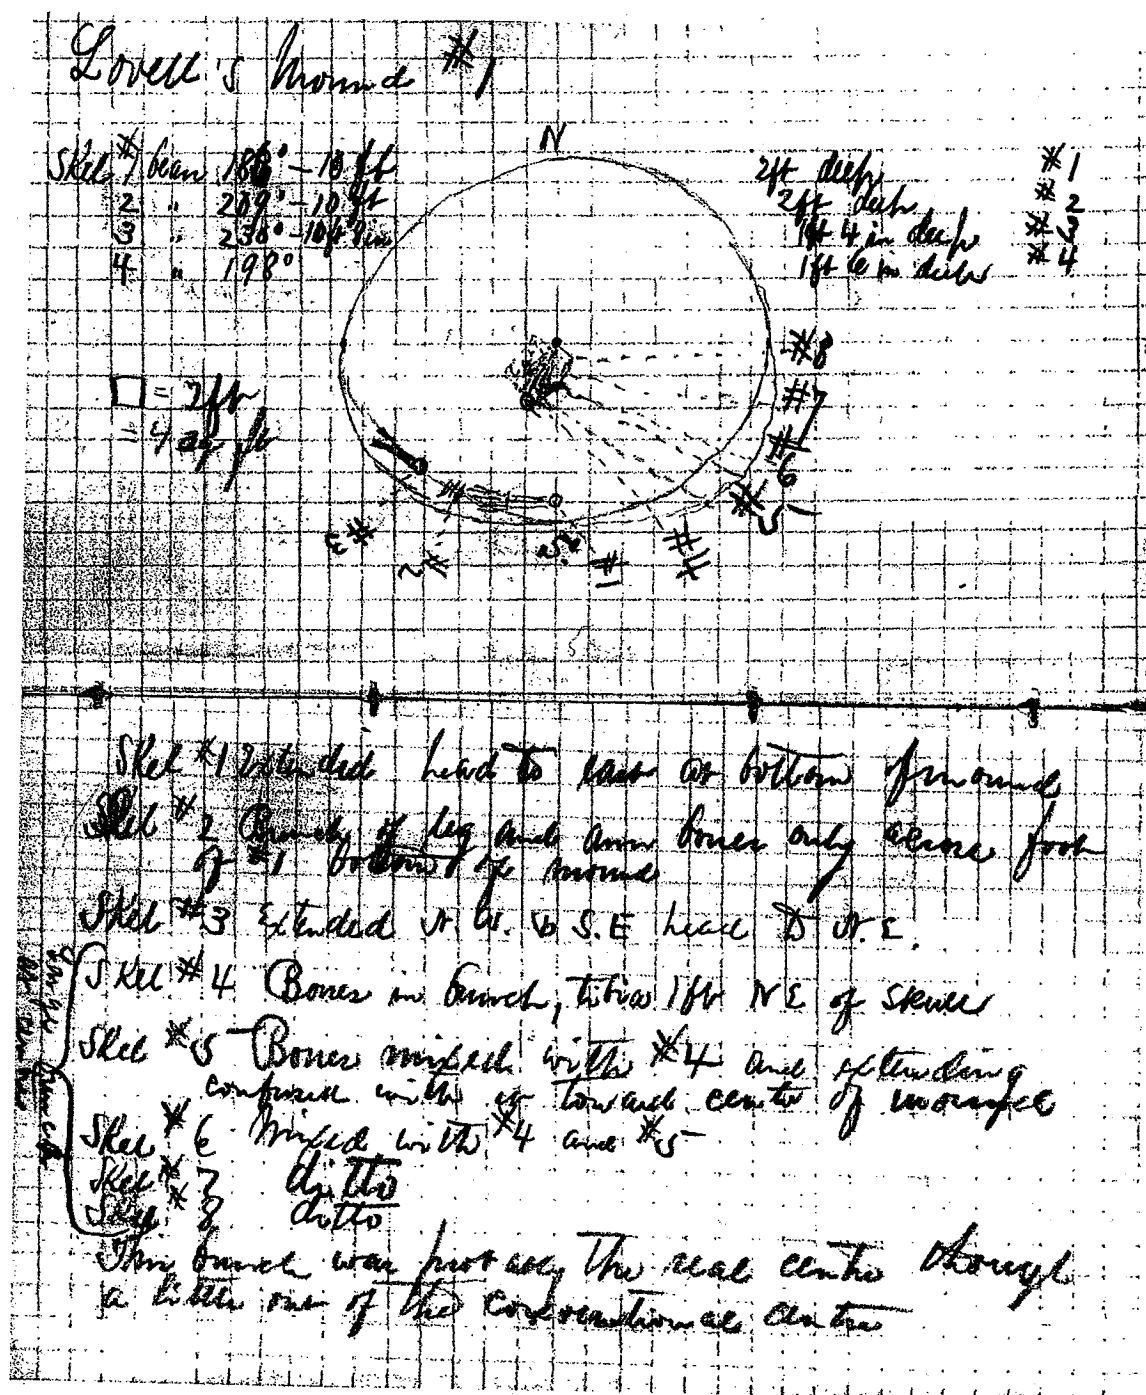 Lovell's Mound #1
N
Skel #1 bears 188° - 10 ft
2 " 209° - 10 ft
3 " 230° - 10ft 8in
4 " 198°
2ft deep #1
2ft deep #2
1ft 4 in deep #3
1ft 6 in deep #4
□ = 2ft
= 4 sq ft
#8
#7
#6
#5
#4
#3
#2
#1
Skel #1 Extended head to east at bottom of mound
Skel #2 Bunch of leg and arm bones only across foot
of #1 bottom of mound
Skel #3 Extended N.W. to S.E head to N.E.
Skel #4 Bones in bunch, tibia 1ft NE of skull
Skel #5 Bones mixed with #4 and extending
confused with it toward centre of mound
Skel #6 Mixed with #4 and #5
Skel #7 ditto
Skel #8 ditto
bunch
This bunch was probably the real centre though
a little out of the conventional centre